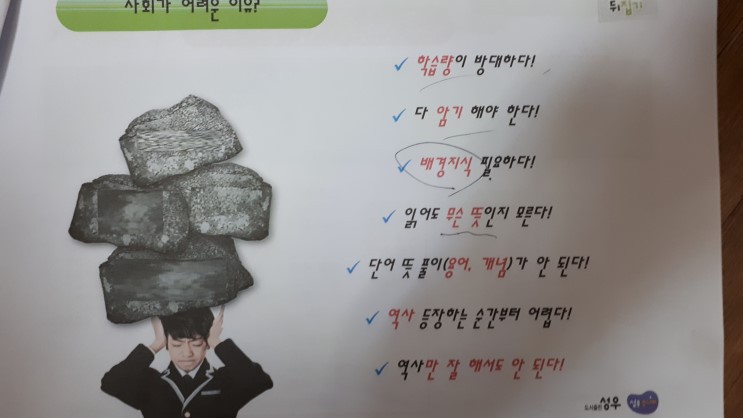 사회가 어려운 이유?
뒤집기
✓ 학습량이 방대하다!
✓ 다 암기 해야 한다!
✓ 배경지식 필요하다!
✓ 읽어도 무슨 뜻인지 모른다!
✓ 단어 뜻 풀이(용어, 개념)가 안 된다!
✓ 역사 등장하는 순간부터 어렵다!
✓ 역사만 잘 해서도 안 된다!
도서출판 성우